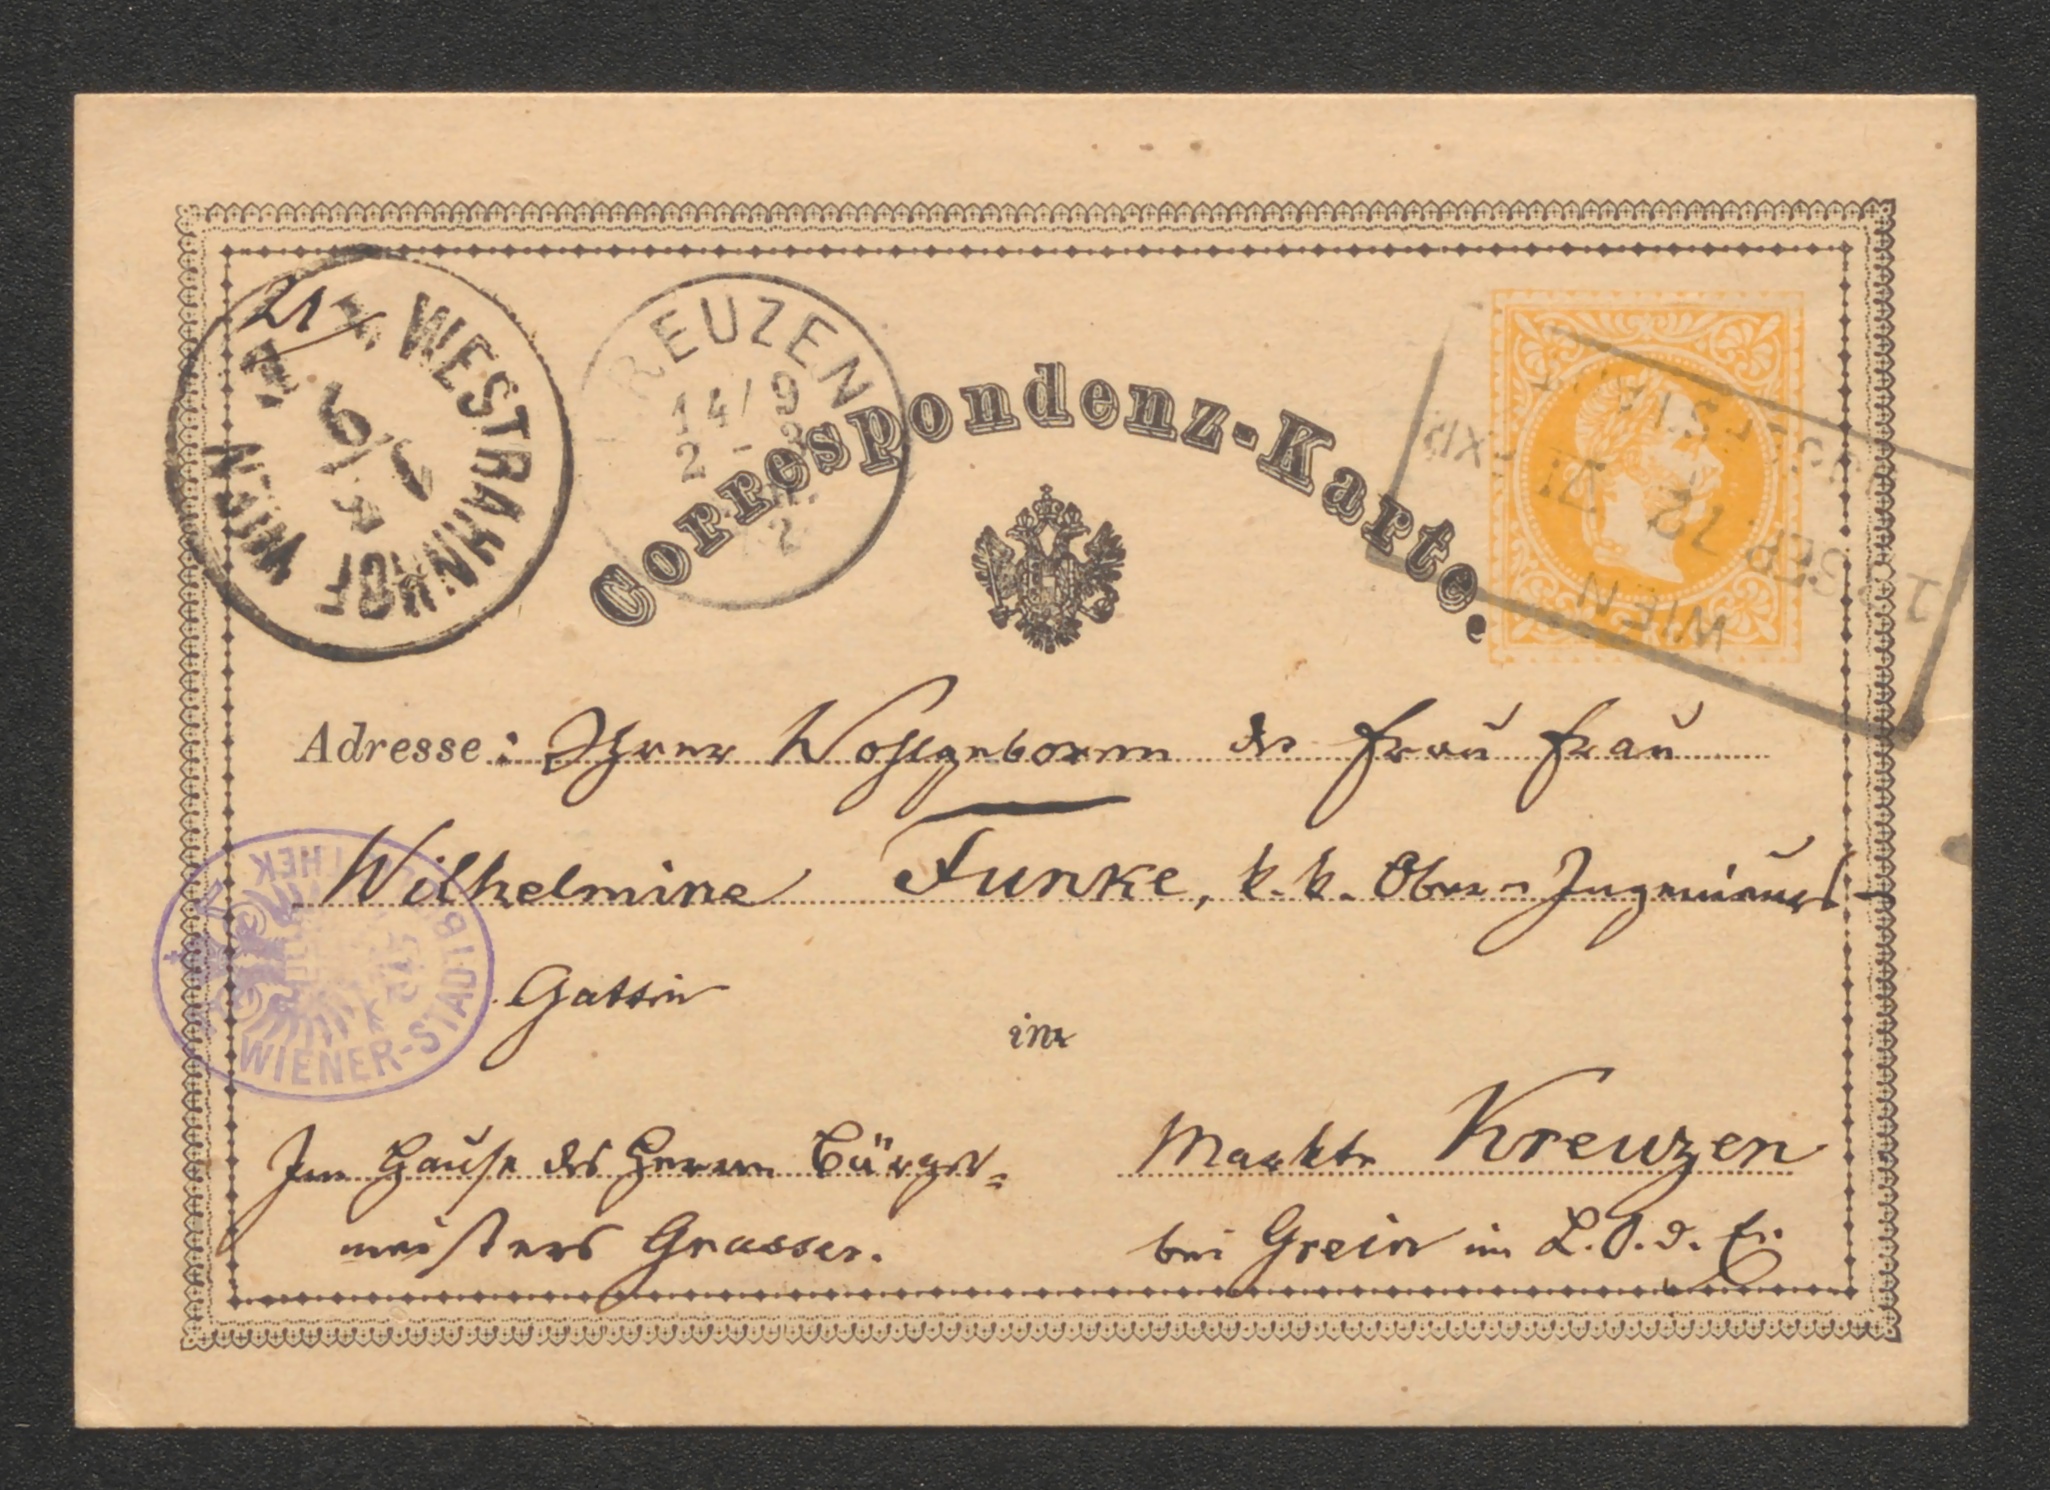 WIEN WESTBAHNHOF
21
KREUZEN
14/9
Correspondenz-Karte.
SEP. 72 VI
WIEN
Adresse: Ihrer Wohlgeboren der Frau Frau
Wilhelmine Funke, k. k. Ober-Ingenieurs-
Gattin
in
Im Hause des Herrn Bürger=
meisters Grasser.
Markte Kreuzen
bei Grein im L. O. d. E.
WIENER-STADTBIBLIOTHEK